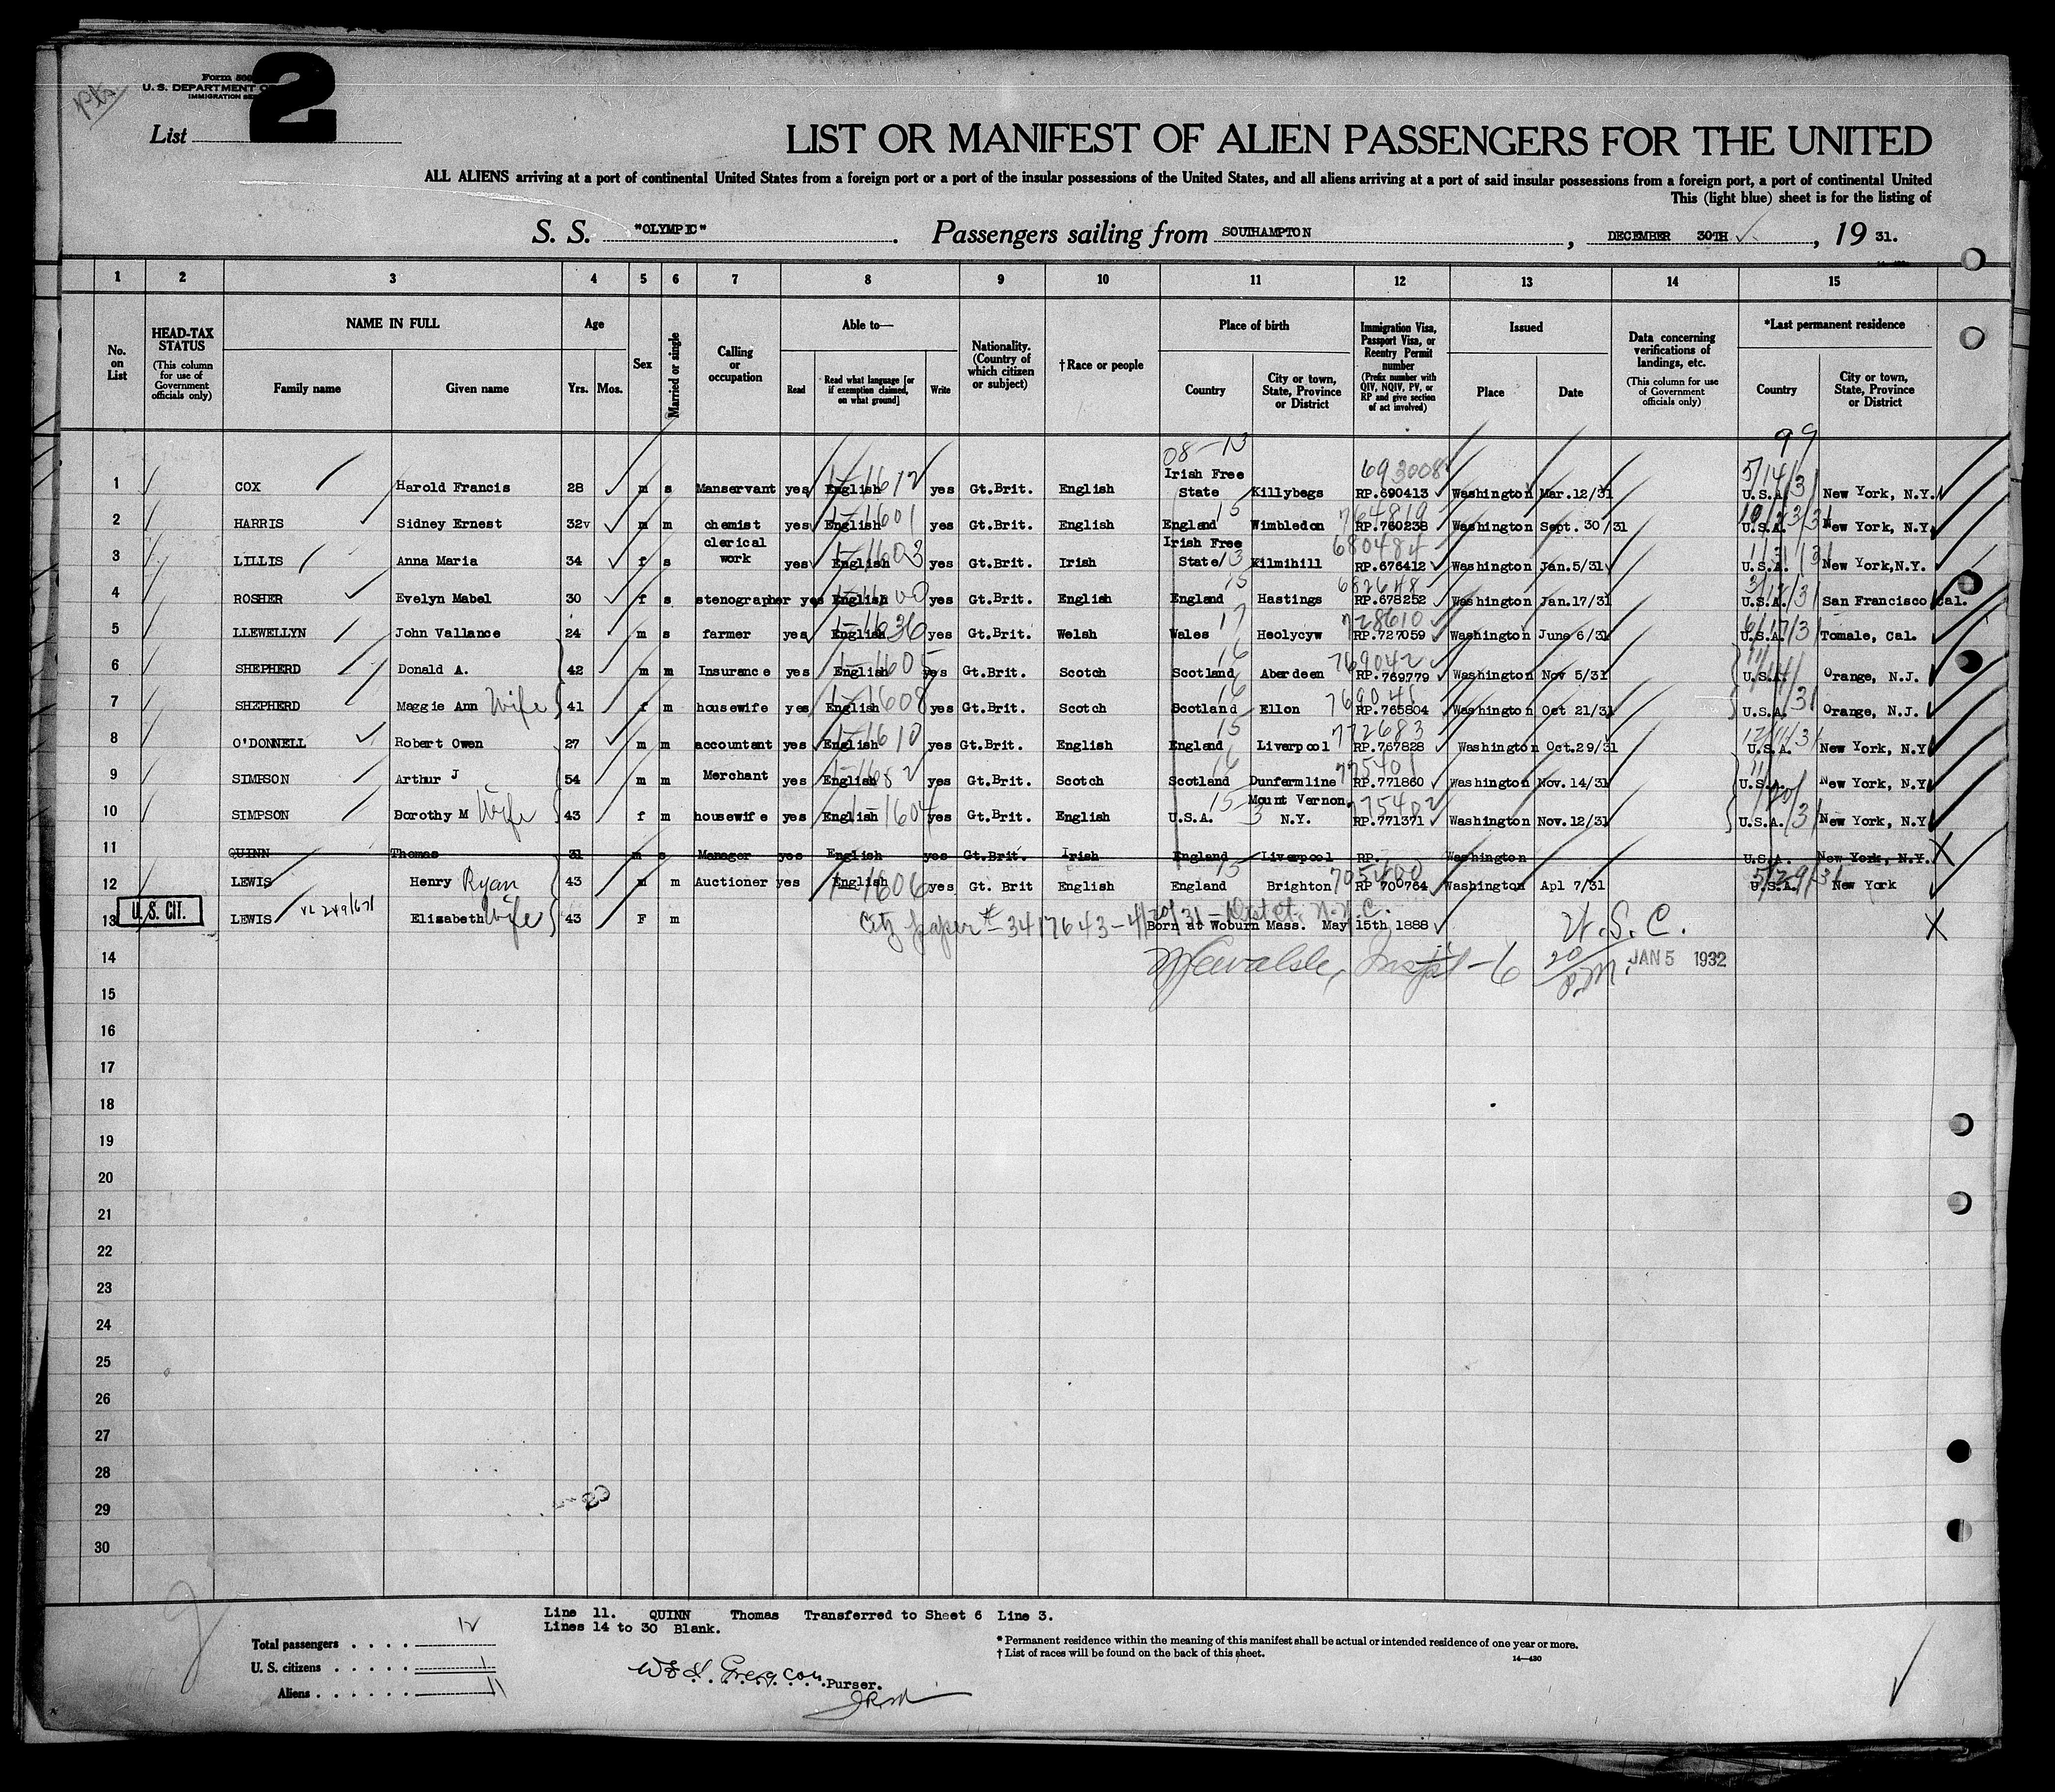 Form 500
U. S. DEPARTMENT O
IMMIGRATION SE
2
List
LIST OR MANIFEST OF ALIEN PASSENGERS FOR THE UNITED
ALL ALIENS arriving at a port of continental United States from a foreign port or a port of the insular possessions of the United States, and all aliens arriving at a port of said insular possessions from a foreign port, a port of continental United
This (light blue) sheet is for the listing of
S. S. "OLYMPIC". Passengers sailing from SOUTHAMPTON, DECEMBER 30TH, 19 31.
1 2 3 4 5 6 7 8 9 10 11 12 13 14 15
No. on List
HEAD-TAX STATUS (This column for use of Government officials only)
NAME IN FULL Family name Given name
Age Yrs. Mos.
Sex
Married or single
Calling or occupation
Able to— Read Read what language [or if exemption claimed, on what ground] Write
Nationality. (Country of which citizen or subject)
†Race or people
Place of birth Country City or town, State, Province or District
Immigration Visa, Passport Visa, or Reentry Permit number (Prefix number with QIV, NQIV, PV, or RP and give section of act involved)
Issued Place Date
Data concerning verifications of landings, etc. (This column for use of Government officials only)
*Last permanent residence Country City or town, State, Province or District
99
08-13 693008 5/14/31
1 COX Harold Francis 28 m s Manservant yes English yes Gt.Brit. English Irish Free State Killybegs RP.690413 Washington Mar.12/31 U.S.A. New York, N.Y.
15 764819
2 HARRIS Sidney Ernest 32 m m chemist yes English yes Gt.Brit. English England Wimbledon RP.760238 Washington Sept.30/31 U.S.A. New York, N.Y.
680484
3 LILLIS Anna Maria 34 f s clerical work yes English yes Gt.Brit. Irish Irish Free State 13 Kilmihill RP.676412 Washington Jan.5/31 U.S.A. New York,N.Y.
15 682648
4 ROSHER Evelyn Mabel 30 f s stenographer yes English yes Gt.Brit. English England Hastings RP.678252 Washington Jan.17/31 U.S.A. San Francisco Cal.
17 728610 6/17/31
5 LLEWELLYN John Vallance 24 m s farmer yes English yes Gt.Brit. Welsh Wales Heolycyw RP.727059 Washington June 6/31 U.S.A. Tomale, Cal.
16 769042
6 SHEPHERD Donald A. 42 m m Insurance yes English yes Gt.Brit. Scotch Scotland Aberdeen RP.769779 Washington Nov 5/31 U.S.A. Orange, N.J.
16 769041
7 SHEPHERD Maggie Ann Wife 41 f m housewife yes English yes Gt.Brit. Scotch Scotland Ellon RP.765804 Washington Oct 21/31 U.S.A. Orange, N.J.
15 772683
8 O'DONNELL Robert Owen 27 m m accountant yes English yes Gt.Brit. English England Liverpool RP.767828 Washington Oct.29/31 U.S.A. New York, N.Y
16 775401
9 SIMPSON Arthur J 54 m m Merchant yes English yes Gt.Brit. Scotch Scotland Dunfermline RP.771860 Washington Nov.14/31 U.S.A. New York, N.Y
15 775402
10 SIMPSON Dorothy M Wife 43 f m housewife yes English yes Gt.Brit. English U.S.A. Mount Vernon, N.Y. RP.771371 Washington Nov.12/31 U.S.A. New York, N.Y
11 QUINN Thomas 31 m s Manager yes English yes Gt.Brit. Irish England Liverpool RP. Washington U.S.A. New York, N.Y. X
15 705400 5/29/31
12 LEWIS Henry Ryan 43 m m Auctioner yes English yes Gt. Brit English England Brighton RP 700764 Washington Apl 7/31 U.S.A. New York
U. S. CIT.
13 LEWIS Elizabeth Wife 43 F m City paper # 3417643-4/20/31 - Dist Ct. N.Y.C. Born at Woburn Mass. May 15th 1888 U.S.C. X
14 JAN 5 1932
15
16
17
18
19
20
21
22
23
24
25
26
27
28
29
30
Line 11. QUINN Thomas Transferred to Sheet 6 Line 3.
Lines 14 to 30 Blank.
Total passengers 12
U. S. citizens 1
Aliens 11
Purser.
* Permanent residence within the meaning of this manifest shall be actual or intended residence of one year or more.
† List of races will be found on the back of this sheet.
14—430